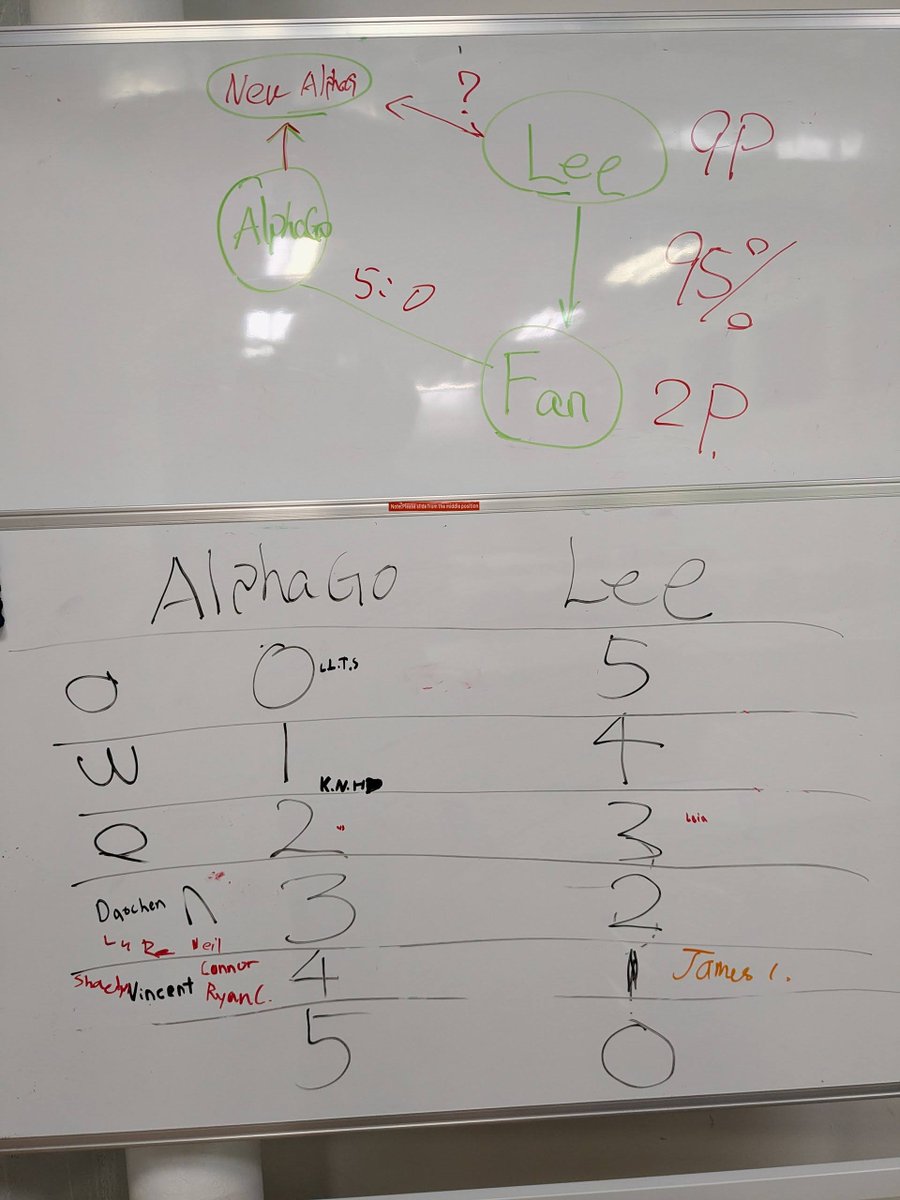 New AlphaG
?
Lee 9P
AlphaGo
5:0
95%
Fan 2P
Note:Please slide from the middle position
AlphaGo Lee
0 L.T.S 5
1 K.N.H 4
2 3
Daochen 3 2
Neil
Connor
Vincent RyanC. 4 1 James l.
5 0